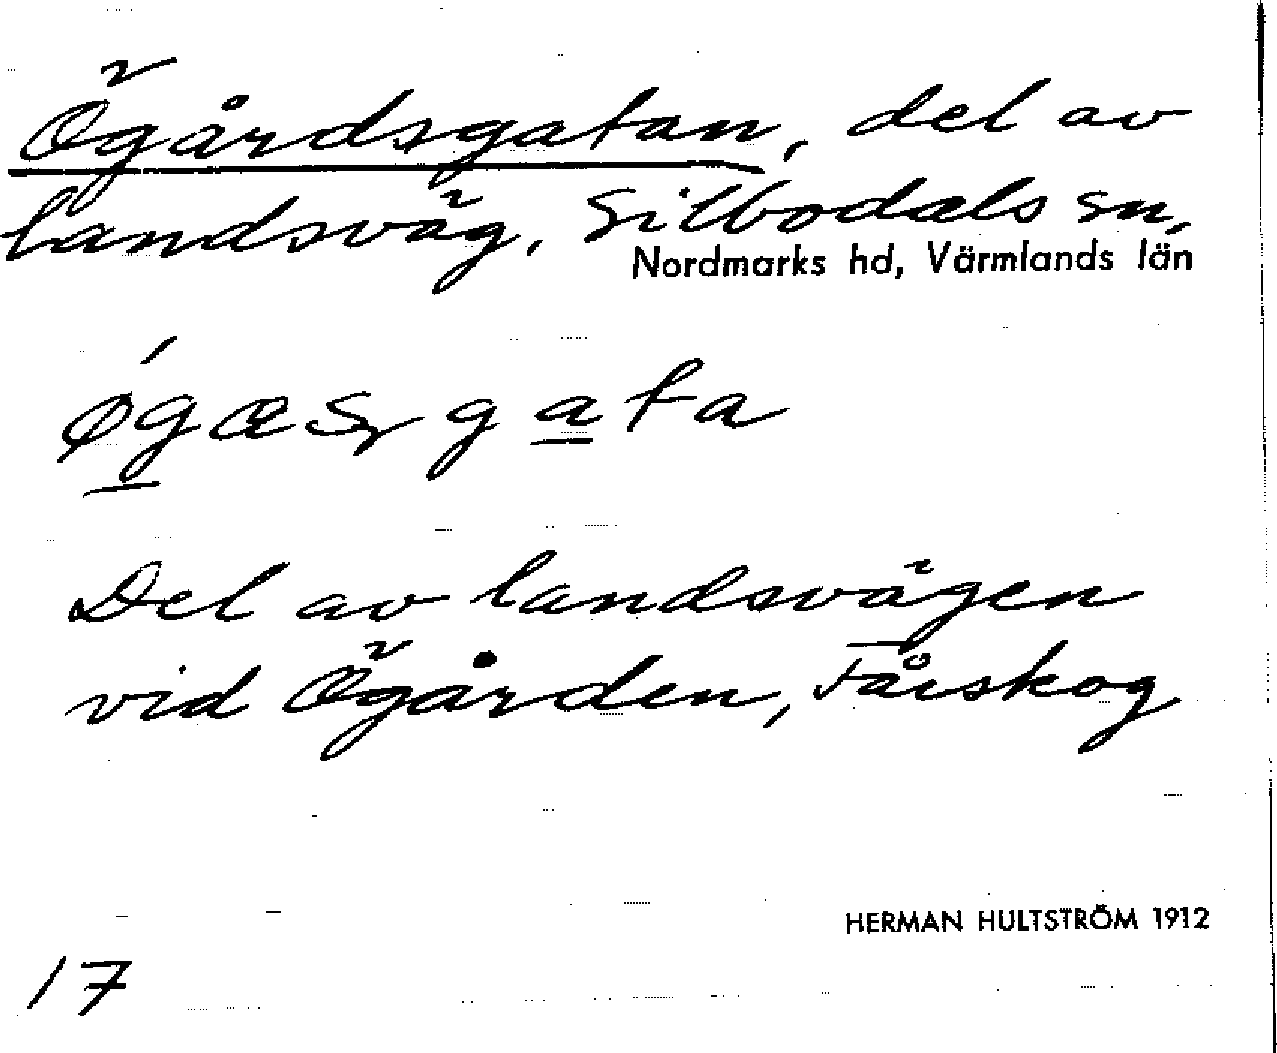 Ögårdsgatan, del av
landsväg, Silbodals sn,
Nordmarks hd, Värmlands län
Del av landsvägen
vid Ögården, Fårskog
HERMAN HULTSTRÖM 1912
17